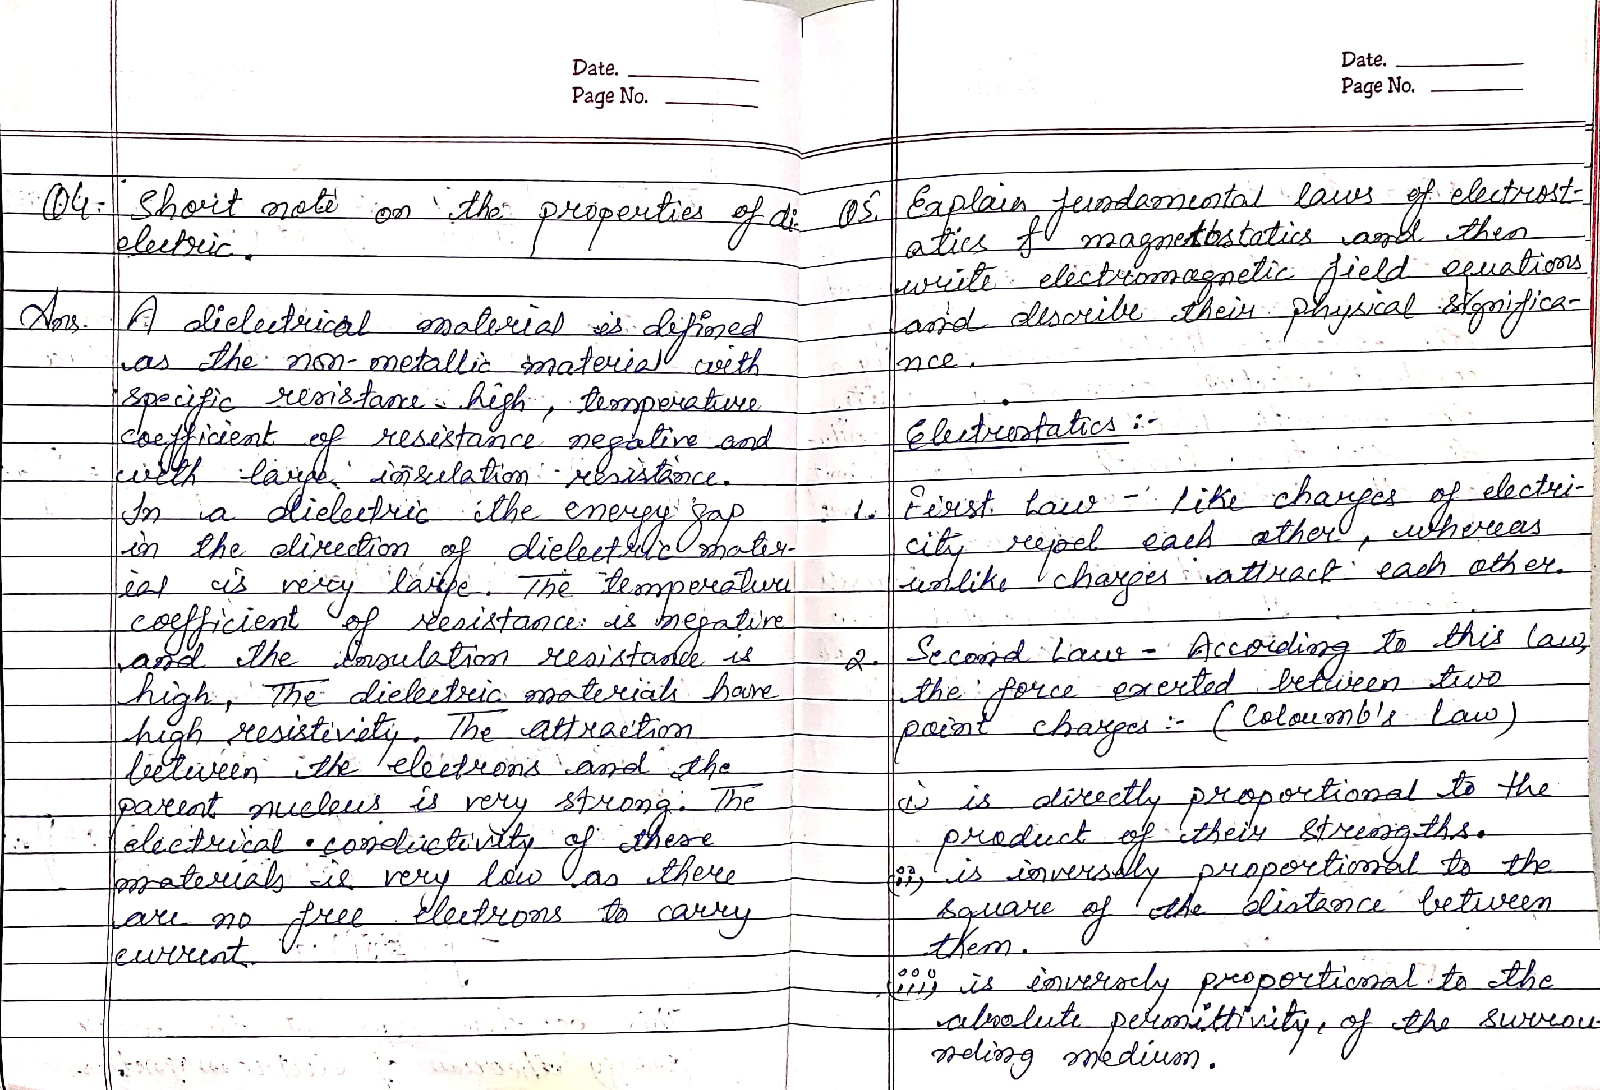 Date.
Page No.
Q4:- Short note on the properties of di-
electric.
Ans. A dielectrical material is defined
as the non-metallic material with
specific resistance high, temperature
coefficient of resistance negative and
with large insulation resistance.
In a dielectric the energy gap
in the direction of dielectric mater-
ial is very large. The temperature
coefficient of resistance is negative
and the insulation resistance is
high, The dielectric materials have
high resistivity. The attraction
between the electrons and the
parent nucleus is very strong. The
electrical conductivity of these
materials is very low as there
are no free electrons to carry
current.
Date.
Page No.
Q5. Explain fundamental laws of electrost-
atics & magnetostatics and then
write electromagnetic field equations
and describe their physical significa-
nce.
Electrostatics :-
1. First Law - Like charges of electri-
city repel each other, whereas
unlike charges attract each other.
2. Second Law - According to this law,
the force exerted between two
point charges :- (Coloumb's Law)
(i) is directly proportional to the
product of their strengths.
(ii) is inversely proportional to the
square of the distance between
them.
(iii) is inversely proportional to the
absolute permittivity, of the surrou-
nding medium.